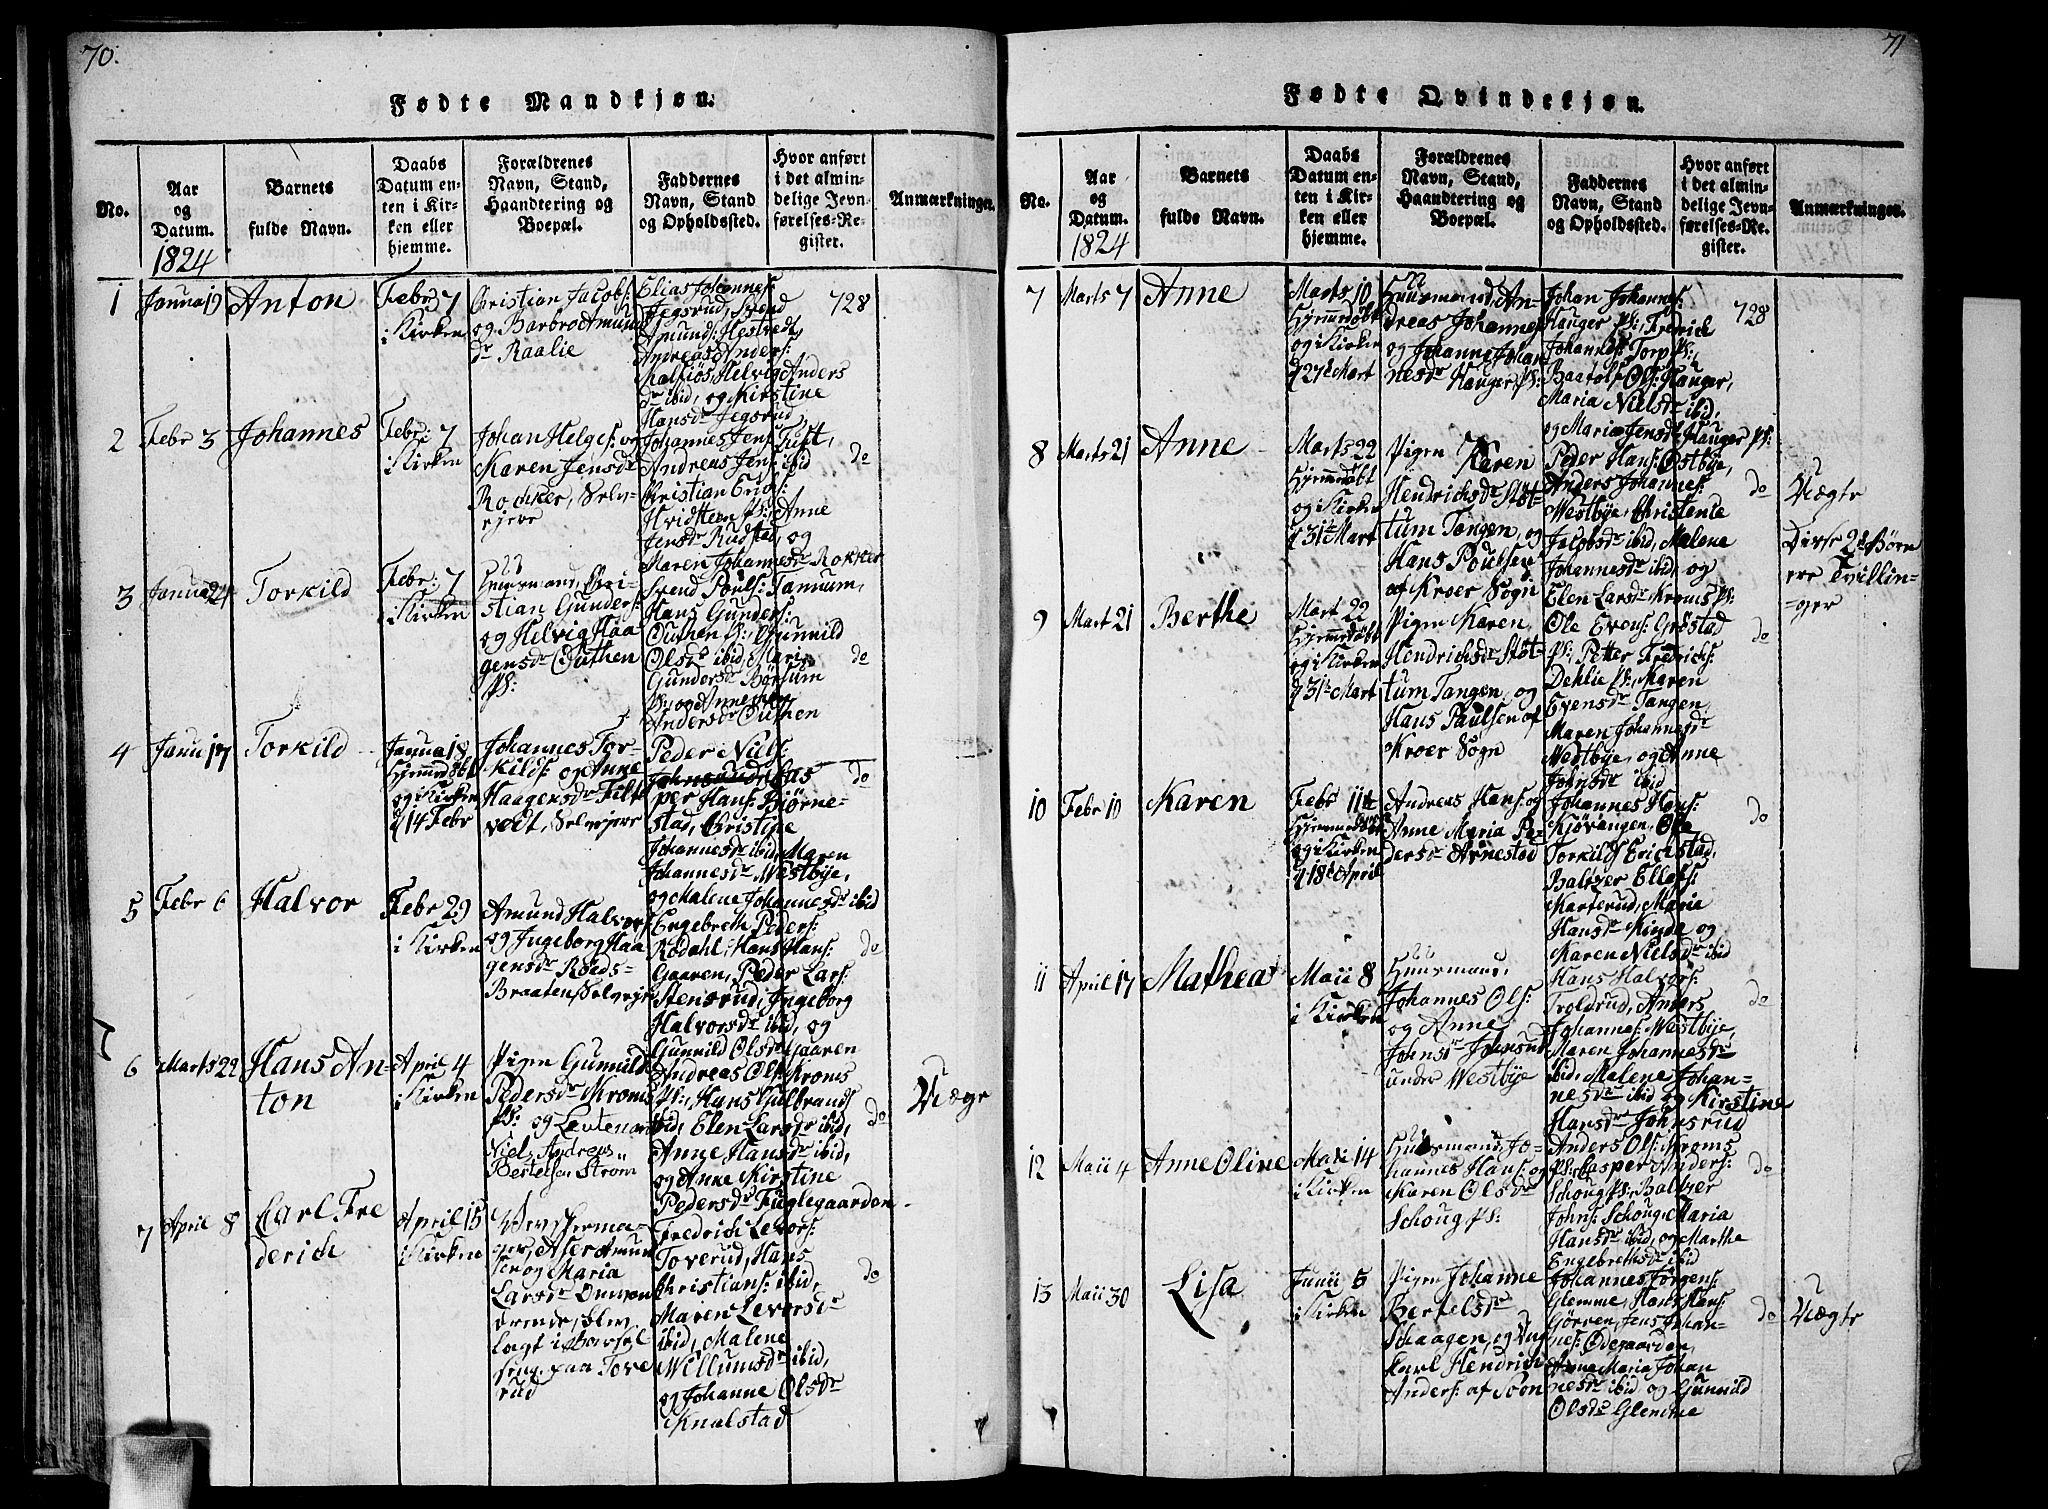 70.
Fødte Mandkjøn.
No.
Aar
og
Datum.
1824
Barnets
fulde Navn.
Daabs
Datum en-
ten i Kir-
ken eller
hjemme.
Forældrenes
Navn, Stand,
Haandtering og
Boepæl.
Faddernes
Navn, Stand
og Opholdssted.
Hvor anført
i det almin-
delige Jevn-
førelses-Re-
gister.
Anmærkninger.
1
Janua 19
Anton
Febr 7
i Kirken
Christian Jacobs:
og Barbro Amund
dr Raalie
Elias Johannes:
Jegsrud, Svend
Amund: Hestvedt,
Andreas Anders:
Malsiøs, Helvig Anders
dr ibid, og Kirstine
Hansdr Jegsrud
728
2
Febr 3
Johannes
Febr: 7
i Kirken
Johan Helges: og
Karen Jensdr
Rockker, Selv
ejere
Johannes Jens: Tift,
Andreas Jens: ibid
Christian Erics:
Hvidsteen Ps: Anne
Jensdr Rudstad, og
Maren Johannesdr Rokker
do
3
Janua 24
Torkild
Febr: 7
i Kirken
Huusmand, Chri-
stian Gunders:
og Helvig Haa
gensdr Outhen
Ps:
Svend Pouls: Tamum,
Hans Gunders:
Outhen Ps: Gunnild
Olsdr ibid, Marie
Gundersdr Børsum
Ps: og Anne
Andersdr Outhen
do
4
Janu 17
Torkild
Janua 18
hjemmedøbt
og i Kirken
d 14 Febr
Johannes Tor-
kilds: og Anne
Haagensdr Filt
vedt, Selvejere
Peder Niels:
Johnsrud, Cas
per Hans: Bjørne-
stad, Christine
Johannesdr ibid, Maren
Johannesdr Westbye,
og Malene Johannesdr ibid
do
5
Febr 6
Halvor
Febr 29
i Kirken
Amund Halvors:
og Ingeborg Haa
gensdr Røeds-
Braaten Selvejer
Engebreth Peders:
Kodahl, Hans Hans:
Gaaren, Peder Lars:
Stensrud, Ingeborg
Halvorsdr ibid, og
Gunnild Olsdr Gaaren
do
6
Marts 22
Hans An-
ton
April 4
i Kirken
Pigen Gunnild
Pedersdr Kroms
Ps: og Leutenant
Niels Andreas
Bertelsen Strom
Andreas Ols: Kroms
Ps:, Hans Gulbrands
ibid, Elen Larsdr ibid,
Anne Hansdr ibid,
og Anne Kirstine
Pedersdr Fuglegaarden
do
Uægte
7
April 8
Carl Fre
derich
April 15
i Kirken
ger, Aser Amund
sen og Maria
Larsdr Omvan
drende, blev
lagt i Barsel
seng paa Tove
rud
Fredrich Levors:
Toverud, Hans
Christians: ibid,
Maren Levorsdr
ibid, Malene
Willumsdr ibid,
og Johanne Olsdr
Knalstad
do
71
Fødte Qvindekjøn.
No.
Aar
og
Datum.
1824
Barnets
fulde Navn.
Daabs
Datum en-
ten i Kir-
ken eller
hjemme.
Forældrenes
Navn, Stand,
Haandtering og
Boepæl.
Faddernes
Navn, Stand
og Opholdssted.
Hvor anført
i det almin-
delige Jevn-
førelses-Re-
gister.
Anmærkninger.
7
Marts 7
Anne
Marts 10
hjemmedøbt
og i Kirken
d 27de Mart
Huusmand, An-
dreas Johannes:
og Johanne Johan
nesdr Hauger Ps:
Johan Johannes:
Hauger Ps:, Fredrich
Johannes: Torp Ps:,
Baatolf Ols: Hauger,
Maria Nielsdr ibid,
og Maria Jensdr Hauger Ps:
728
8
Marts 21
Anne
Marts 22
hjemmedøbt
og i Kirken
d 31te Mart
Pigen Karen
Hendrichsdr Støt-
tum Tangen, og
Hans Poulsen
af Kroer Sogn
Peder Hans: Østbye,
Anders Johannes:
Westbye, Christense
Jacobsdr ibid, Malene
Johannesdr ibid, og
Elen Larsdr Kroms Ps:
do
Uægte
Disse 2de Børn
ere Tvillin-
ger
9
Mart 21
Berthe
Mart 22
hjemmedøbt
og i Kirken
d 31te Mart
Pigen Karen
Hendrichsdr Støt-
tum Tangen, og
Hans Paulsen af
Kroer Sogn
Ole Evens: Gröstad
Ps:, Petter Fredrichs:
Dehlie Ps:, Karen
Evensdr Tangen,
Maren Johannesdr
Westbye, og Anne
Johnsdr ibid
do
10
Febr 10
Karen
Febr 11te
hjemmedøbt
og i Kirken
d 18de April
Andreas Hans: og
Anne Maria Pe-
dersdr Arnestad
Johannes Hans:
Kjøvangen, Ole
Torkilds: Erichstad,
Baltzer Ellefs:
Marterud, Maria
Hansdr Kinde og
Karen Nielsdr ibid
do
11
April 17
Mathea
Maii 8
i Kirken
Huusmand,
Johannes Ols:
og Anne
Johnsdr Johnsrud
under Westbye
Hans Halvors:
Troldrud, Anders
Johannes: Westbye,
Maren Johannesdr
ibid, Malene Johan-
nesdr ibid og Kirstine
Hansdr Johnsrud
do
12
Maii 4
Anne Oline
Maii 14
i Kirken
Huusmand, Jo-
hannes Hans: og
Karen Olsdr
Schoug Ps:
Anders Ols: Kroms
Ps: Casper Anders:
Schoug Ps: Baltzer
Johns: Schoug, Maria
Hansdr ibid, og Marthe
Engebrethsdr ibid
do
13
Maii 30
Lisa
Junii 5
i Kirken
Pigen Johanne
Bertelsdr
Schaagen, og Ung
karl Hendrich
Anders: af Soon
Johannes Jørgens:
Glemme, Hans Hans:
Görven, Jens Johan-
nes: Ødegaarden,
Anne Maria Johan
nesdr ibid og Gunnild
Olsdr Glemme
do
Uægte